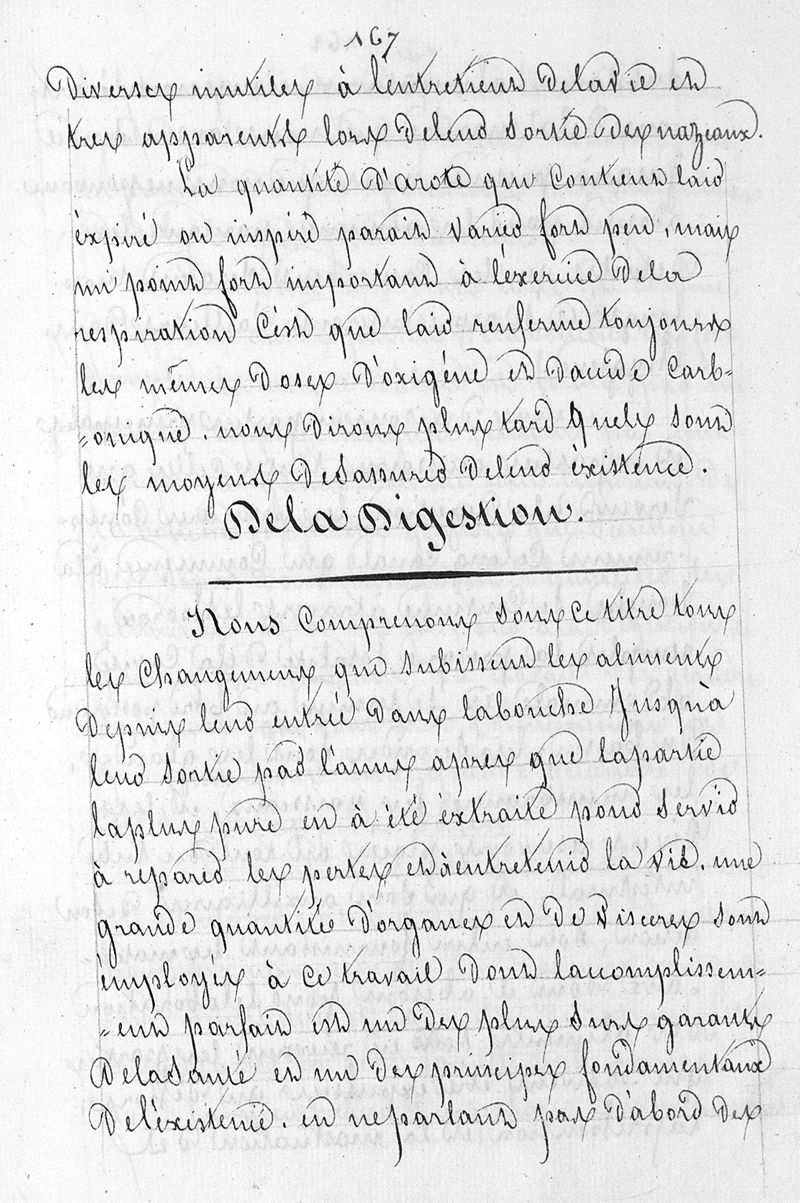 167
Diverses inutiles à lentretient delavie et
tres apparents lors deleur sortie des nazeaux.
La quantité d'azote que contient lair
éxpiré ou inspiré parait varier fort peu, mais
un point fort important à léxercice dela
respiration cést que lair renferme toujours
les mêmes doses d'oxigéne et dacide carb-
-onique. nous dirons plus tard quels sont
les moyens desassurer deleur éxistence.
De la Digestion.
Nous comprenons sous ce titre tous
les changemens que subissent les aliments
depuis leur entrée dans labouche Jusqu'à
leur sortie par l'anus apres que lapartie
laplus pure en à été éxtraite pour servir
à reparer les pertes et à entretenir la vie. une
grande quantité d'organes et de visceres sont
émployes à ce travail dont laccomplissem-
-ent parfait est un des plus surs garants
delasanté et un des principes fondamentaux
de l'éxistence. en neparlant pas d'abord des